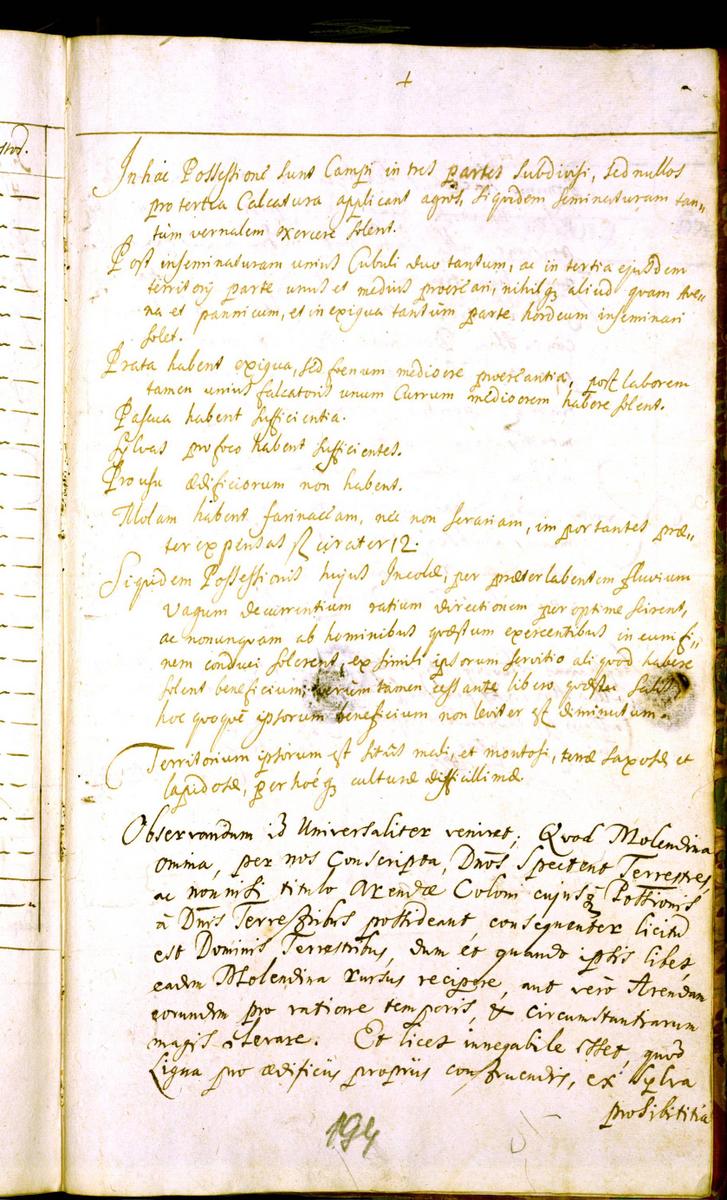 stod.
+
In hac Possessione sunt Campi in tres partes subdivisi, sed nullos
pro tertia Calcatura applicant agros, siquidem seminaturam tan=
tum vernalem exercere solent.
Post inseminaturam unius Cubuli duo tantum, ac in tertia ejusdem
territorij parte unus et medius procreari, nihilq3 aliud quam Ave=
na et pannicum, et in exigua tantum parte hordeum inseminari
solet.
Prata habent exigua, sed foenum mediocre procreantia, post laborem
tamen unius falcatoris unum Currum mediocrem habere solent.
Pascua habent sufficientia.
Sylvas pro foco habent sufficientes.
Pro usu ædificiorum non habent.
Molam habent farinaceam, nec non serariam, importantes præ=
ter expensas fl circiter 12.
Siquidem Possessionis hujus Incolæ, per præterlabentem fluvium
Vagum decurrentium ratium directionem per optime scirent,
ac nonunquam ab hominibus quæstum exercentibus in eum fi=
nem conduci solerent, ex simili ipsorum servitio aliquod habere
solent beneficium, verum tamen cessante libero quæstu Salis
hoc quoque ipsorum beneficium non leviter est diminutum.
Territorium ipsorum est situs medi, et montosi, terræ saxosæ et
lapidosæ, per hocq3 culturæ difficillimæ.
Observandum id Universaliter veniret; Quod Molendina
omnia, per nos Conscripta, Dnos Spectent Terrestres,
ac nonnisi titulo Arendæ Coloni cujusq3 Possionis
à Dnis Terrestribus possideant, consequenter licitu
est Dominis Terrestribus, dum et quando ipsis libet
eadem Molendina rursus recipere, aut vero Arendam
eorundem pro ratione temporis, & circumstantiarum
magis elevare. Et licet innegabile esset, quod
Ligna pro ædificiis propriis construendis, ex Sylva
prohibitiva
194